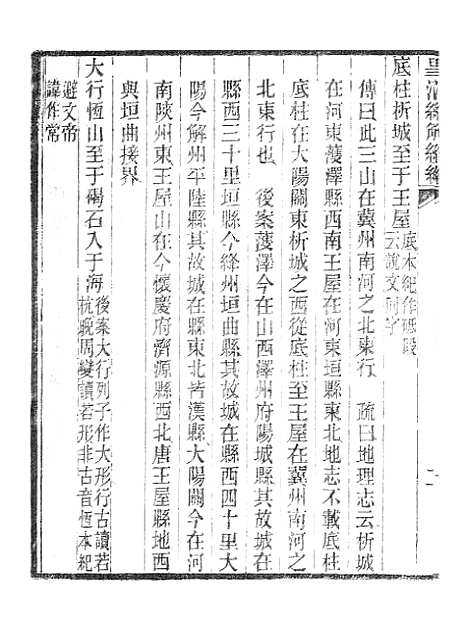 皇清經解續編
底柱析城至于王屋底本紀作砥段
云說文同字
傳曰此三山在冀州南河之北東行　疏曰地理志云析城
在河東濩澤縣西南王屋在河東垣縣東北地志不載底柱
底柱在大陽關東析城之西從底柱至王屋在冀州南河之
北東行也　後案濩澤今在山西澤州府陽城縣其故城在
縣西三十里垣縣今絳州垣曲縣其故城在縣西四十里大
陽今解州平陸縣其故城在縣東北皆漢縣大陽關今在河
南陝州東王屋山在今懷慶府濟源縣西北唐王屋縣地西
與垣曲接界
大行恆山至于碣石入于海後案大行列子作大形行古讀若
杭晚周變讀若形非古音恆本紀
避文帝
諱作常